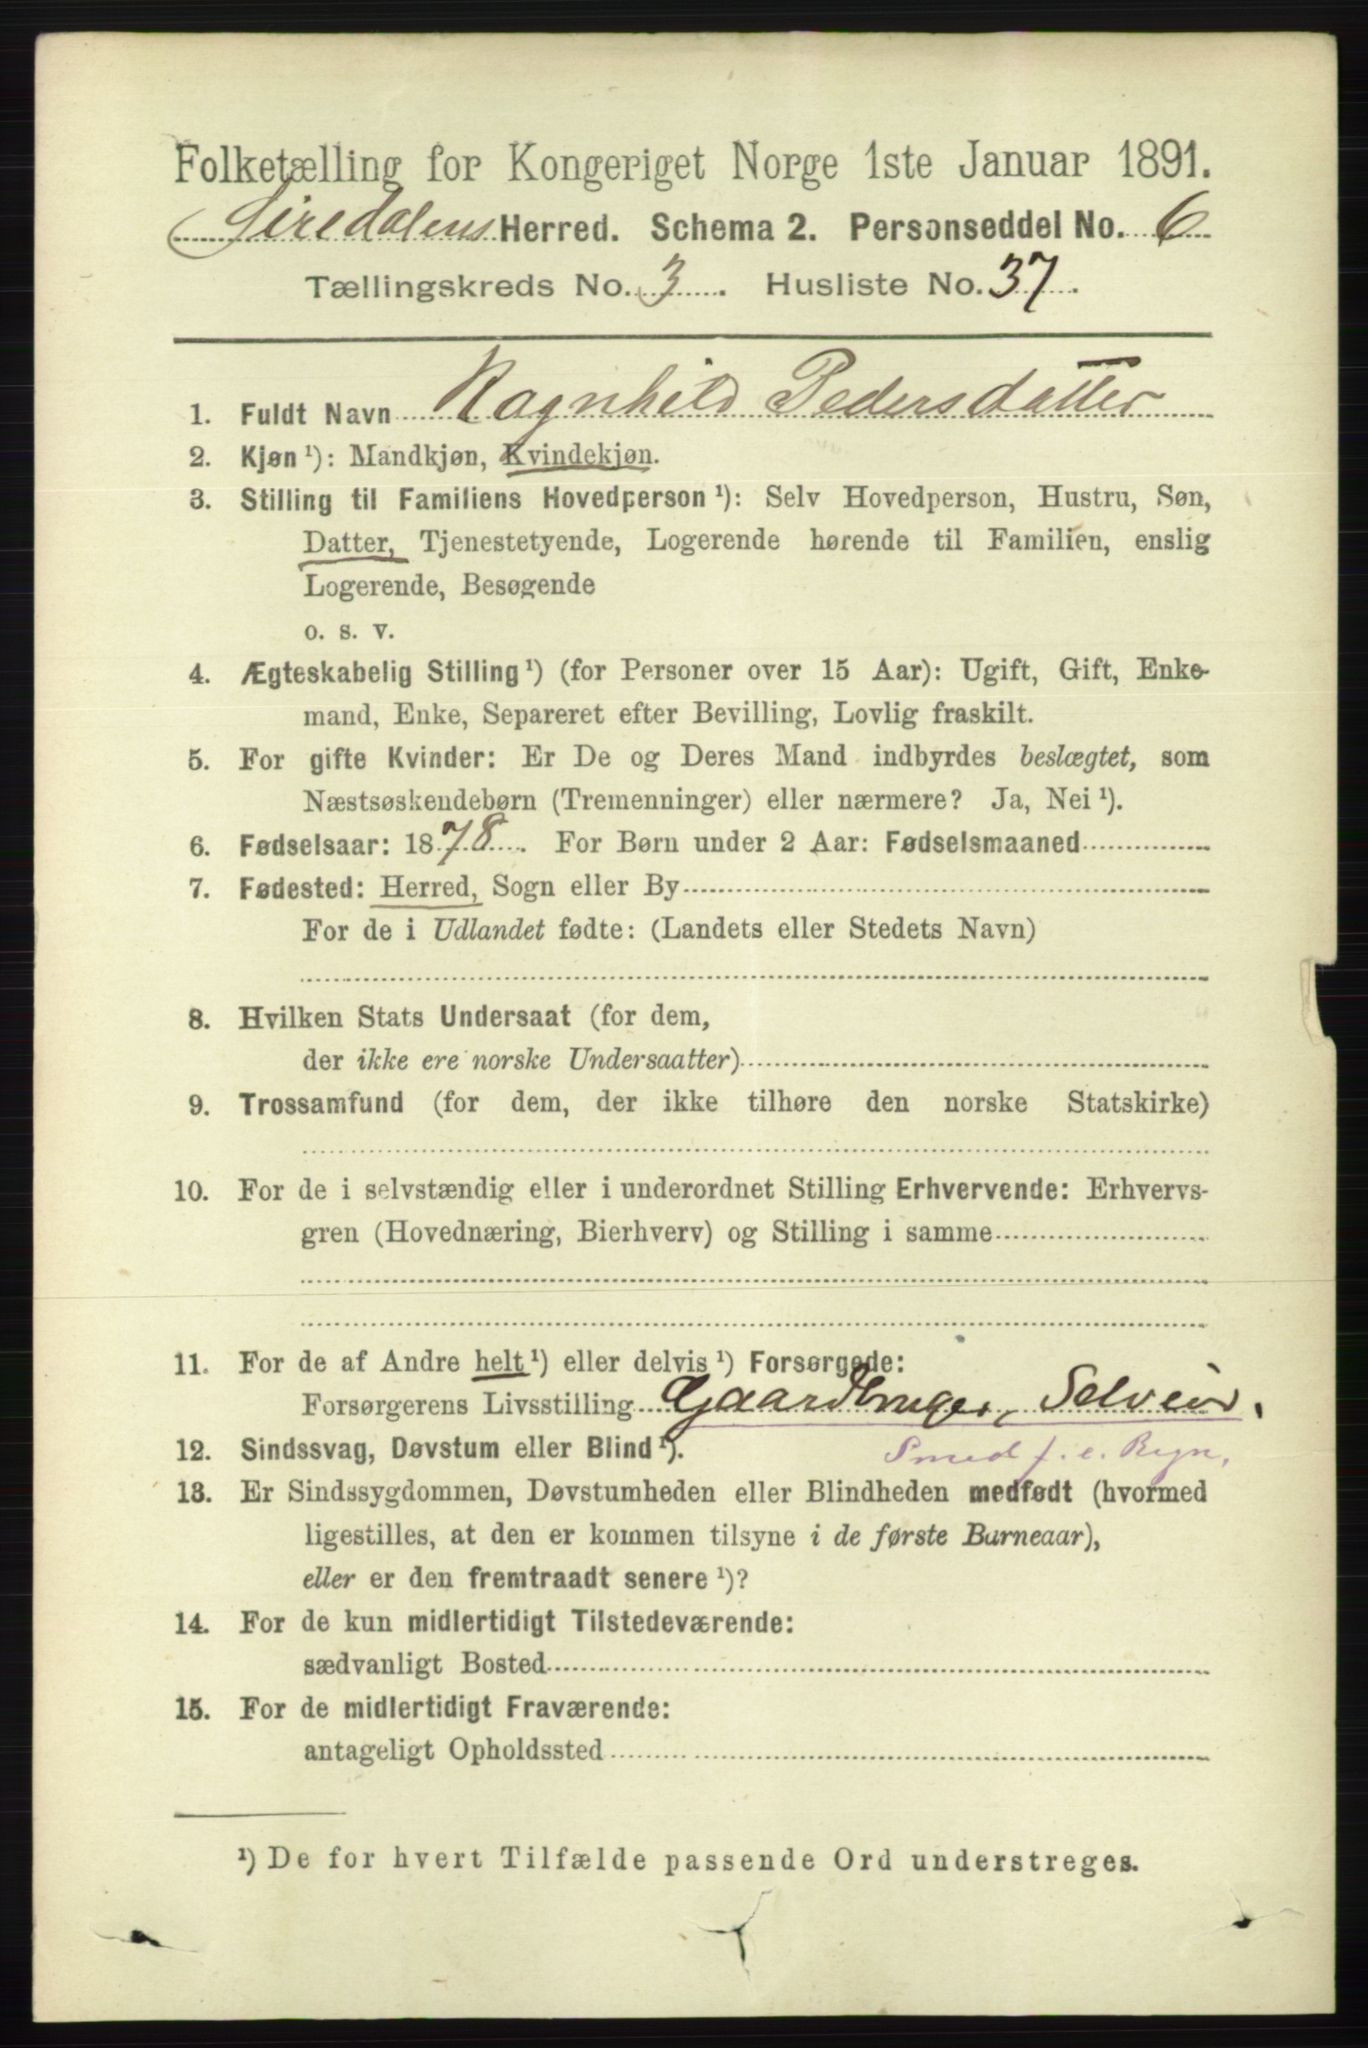 Folketælling for Kongeriget Norge 1ste Januar 1891.
Siredalens Herred. Schema 2. Personseddel No. 6
Tællingskreds No. 3. Husliste No. 37.
1. Fuldt Navn Ragnhild Pedersdatter
2. Kjøn ¹): Mandkjøn, Kvindekjøn.
3. Stilling til Familiens Hovedperson ¹): Selv Hovedperson, Hustru, Søn,
Datter, Tjenestetyende, Logerende hørende til Familien, enslig
Logerende, Besøgende
o. s. v.
4. Ægteskabelig Stilling ¹) (for Personer over 15 Aar): Ugift, Gift, Enke-
mand, Enke, Separeret efter Bevilling, Lovlig fraskilt.
5. For gifte Kvinder: Er De og Deres Mand indbyrdes beslægtet, som
Næstsøskendebørn (Tremenninger) eller nærmere? Ja, Nei ¹).
6. Fødselsaar: 1878. For Børn under 2 Aar: Fødselsmaaned
7. Fødested: Herred, Sogn eller By
For de i Udlandet fødte: (Landets eller Stedets Navn)
8. Hvilken Stats Undersaat (for dem,
der ikke ere norske Undersaatter)
9. Trossamfund (for dem, der ikke tilhøre den norske Statskirke)
10. For de i selvstændig eller i underordnet Stilling Erhvervende: Erhvervs-
gren (Hovednæring, Bierhverv) og Stilling i samme
11. For de af Andre helt ¹) eller delvis ¹) Forsørgede:
Forsørgerens Livsstilling Gaardbruger, Selveier.
12. Sindssvag, Døvstum eller Blind ¹). Smed f. e. Regn,
13. Er Sindssygdommen, Døvstumheden eller Blindheden medfødt (hvormed
ligestilles, at den er kommen tilsyne i de første Barneaar),
eller er den fremtraadt senere ¹)?
14. For de kun midlertidigt Tilstedeværende:
sædvanligt Bosted
15. For de midlertidigt Fraværende:
antageligt Opholdssted
¹) De for hvert Tilfælde passende Ord understreges.